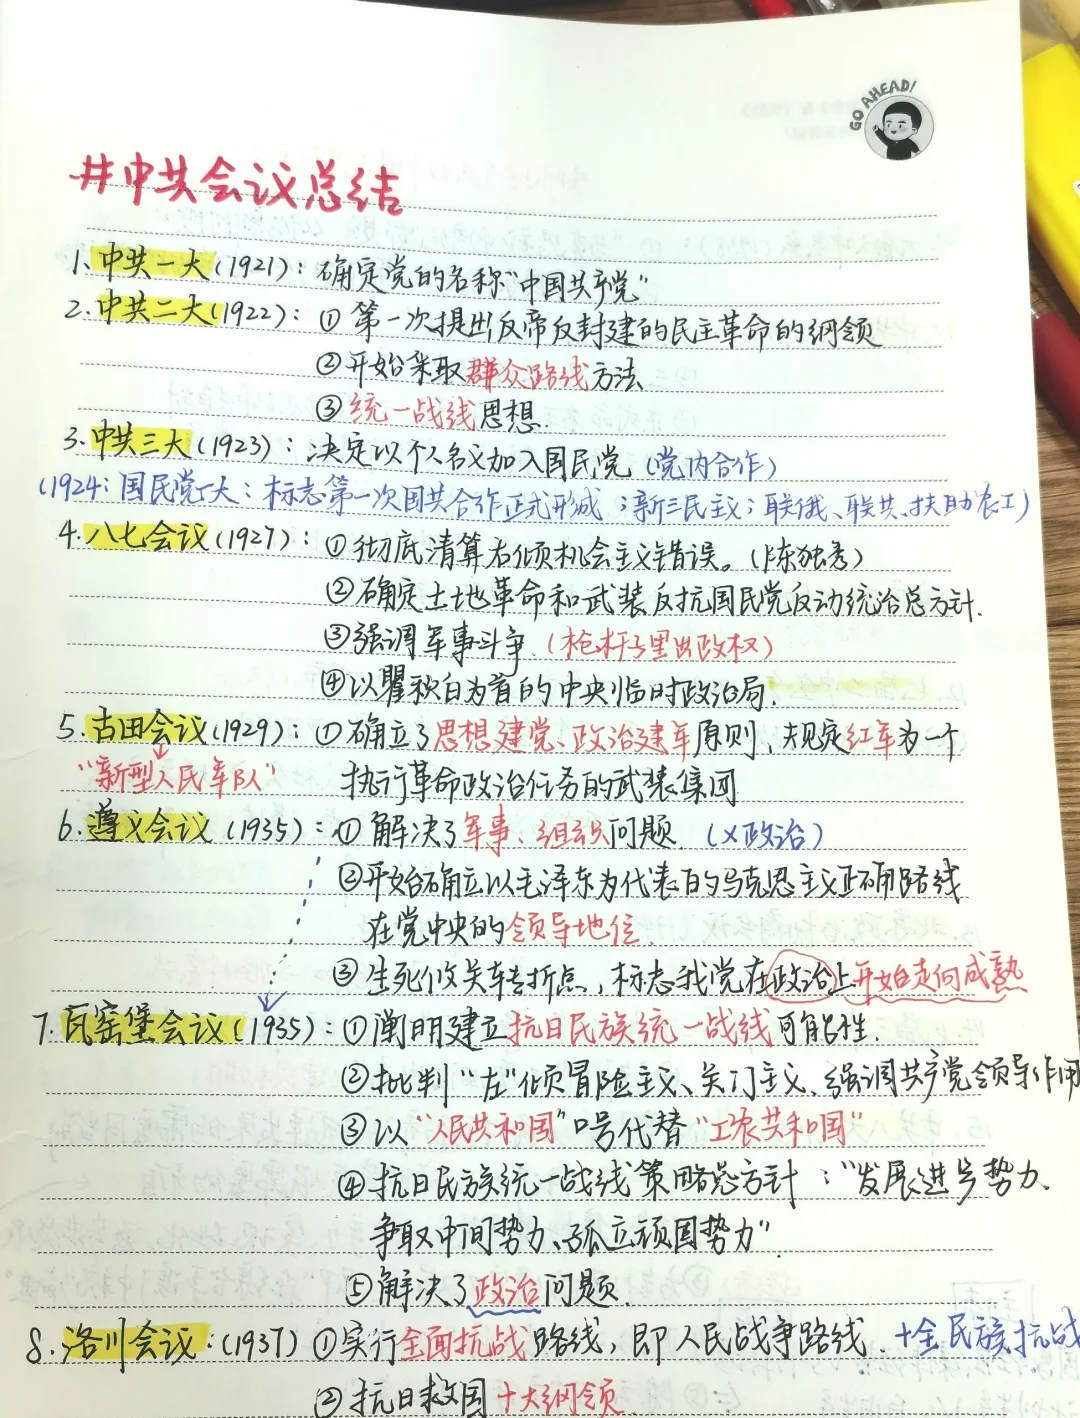 GO AHEAD!
#中共会议总结
1.中共一大(1921)：确定党的名称“中国共产党”
2.中共二大(1922)：①第一次提出反帝反封建的民主革命的纲领
②开始采取群众路线方法
③统一战线思想.
3.中共三大(1923)：决定以个人名义加入国民党(党内合作)
(1924：国民党一大：标志第一次国共合作正式形成；新三民主义；联俄、联共、扶助农工)
4.八七会议(1927)：①彻底清算右倾机会主义错误。(陈独秀)
②确定土地革命和武装反抗国民党反动统治总方针.
③强调军事斗争.(枪杆子里出政权)
④以瞿秋白为首的中央临时政治局.
5.古田会议(1929)：①确立了思想建党、政治建军原则、规定红军为一个
“新型人民军队” 执行革命政治任务的武装集团
6.遵义会议(1935)：①解决了军事、组织问题.(×政治)
②开始确立以毛泽东为代表的马克思主义正确路线
在党中央的领导地位.
③生死攸关转折点,标志我党在政治上开始走向成熟
7.瓦窑堡会议(1935)：①阐明建立抗日民族统一战线可能性.
②批判“左”倾冒险主义、关门主义、强调共产党领导作用
③以“人民共和国”口号代替“工农共和国”
④抗日民族统一战线策略总方针：“发展进步势力、
争取中间势力、孤立顽固势力”.
⑤解决了政治问题.
8.洛川会议：(1937)①实行全面抗战路线,即人民战争路线.+全民族抗战
②抗日救国十大纲领